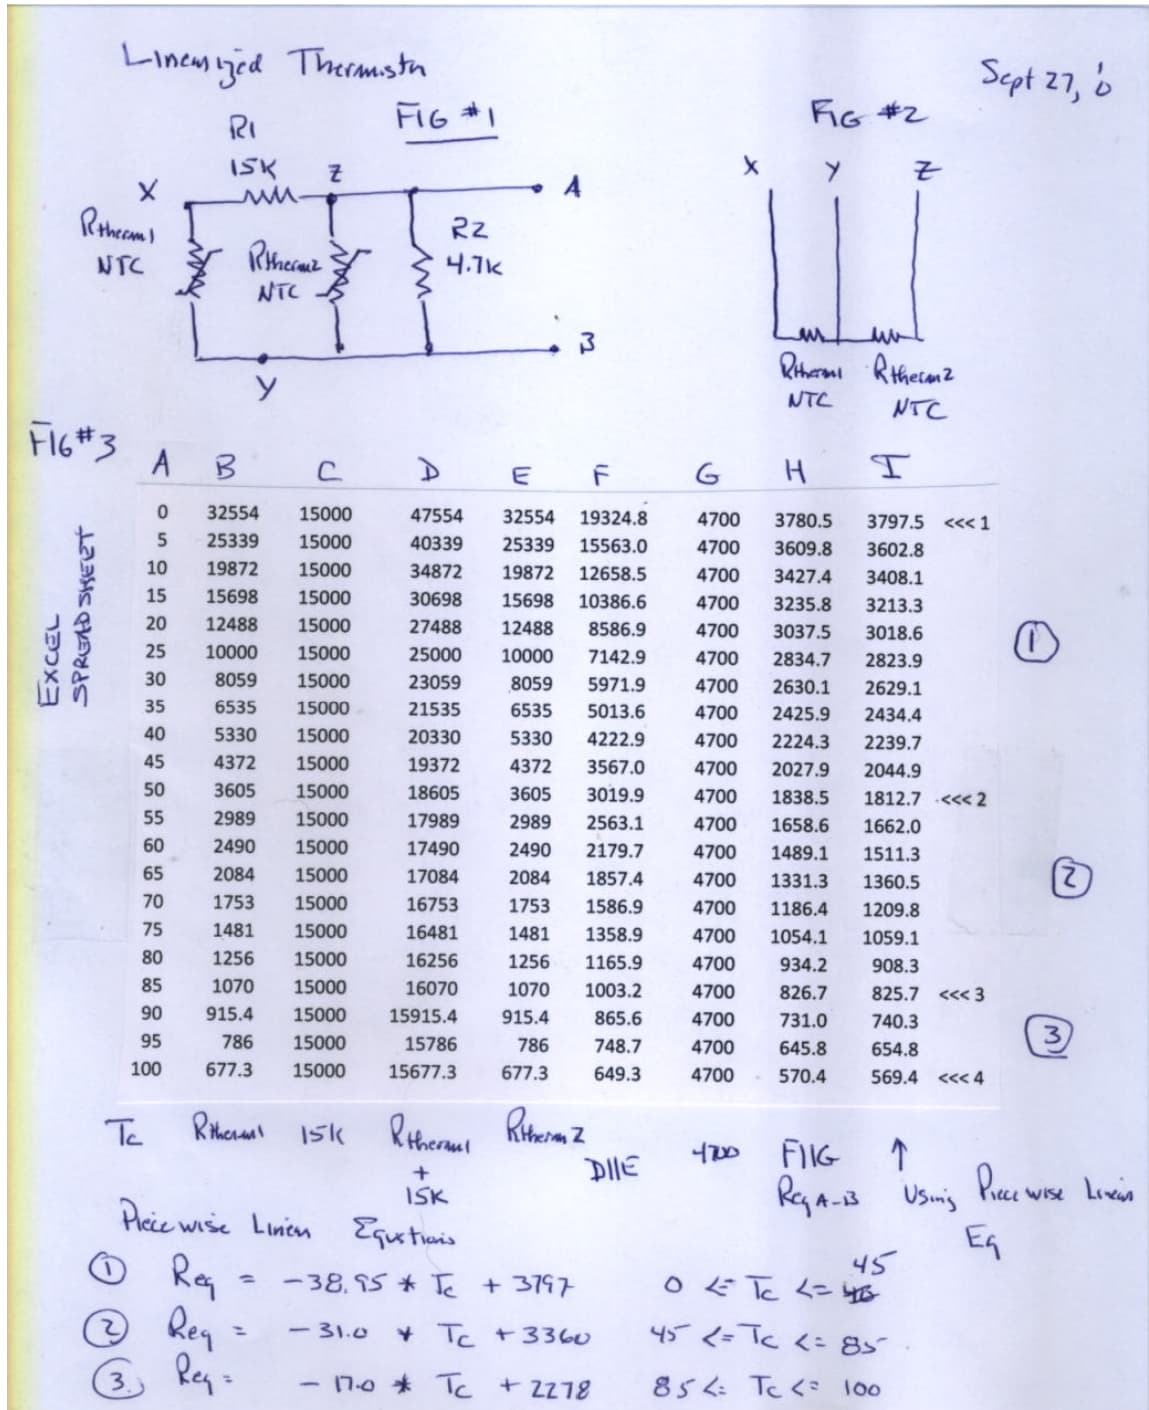 Linearized Thermistor
Sept 27, 10
FIG #1
FIG #2
R1
15K
X
Z
A
Rtherm1
NTC
Rtherm2
NTC
R2
4.7K
Y
B
X Y Z
Rtherm1 Rtherm2
NTC NTC
FIG#3
EXCEL
SPREADSHEET
A B C D E F G H I
0 32554 15000 47554 32554 19324.8 4700 3780.5 3797.5 <<< 1
5 25339 15000 40339 25339 15563.0 4700 3609.8 3602.8
10 19872 15000 34872 19872 12658.5 4700 3427.4 3408.1
15 15698 15000 30698 15698 10386.6 4700 3235.8 3213.3
20 12488 15000 27488 12488 8586.9 4700 3037.5 3018.6
①
25 10000 15000 25000 10000 7142.9 4700 2834.7 2823.9
30 8059 15000 23059 8059 5971.9 4700 2630.1 2629.1
35 6535 15000 21535 6535 5013.6 4700 2425.9 2434.4
40 5330 15000 20330 5330 4222.9 4700 2224.3 2239.7
45 4372 15000 19372 4372 3567.0 4700 2027.9 2044.9
50 3605 15000 18605 3605 3019.9 4700 1838.5 1812.7 <<< 2
55 2989 15000 17989 2989 2563.1 4700 1658.6 1662.0
60 2490 15000 17490 2490 2179.7 4700 1489.1 1511.3
65 2084 15000 17084 2084 1857.4 4700 1331.3 1360.5
②
70 1753 15000 16753 1753 1586.9 4700 1186.4 1209.8
75 1481 15000 16481 1481 1358.9 4700 1054.1 1059.1
80 1256 15000 16256 1256 1165.9 4700 934.2 908.3
85 1070 15000 16070 1070 1003.2 4700 826.7 825.7 <<< 3
90 915.4 15000 15915.4 915.4 865.6 4700 731.0 740.3
③
95 786 15000 15786 786 748.7 4700 645.8 654.8
100 677.3 15000 15677.3 677.3 649.3 4700 570.4 569.4 <<< 4
Tc Rtherm1 15K Rtherm1 Rtherm2 4700 F||G ↑
+ D||E
15K Req A-B Using Piecewise Linear
Eq
Piecewise Linear Equations
① Req = -38.95 * Tc + 3797 0 <= Tc <= 45
② Req = -31.0 * Tc + 3360 45 <= Tc <= 85
③ Req = -17.0 * Tc + 2278 85 <= Tc <= 100